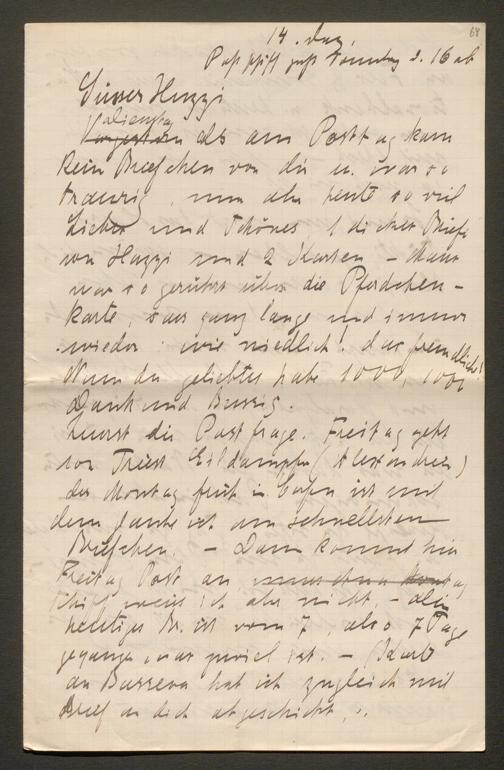 68
14. Dez.
Postschiff geht Sonntag d. 16 ab
Süsser Huzzi
Dienstag
als am Posttag kam
kein Briefchen von dir u. war so
traurig, nun aber heute so viel
Liebes und Schönes 1 dicker Brief
von Huzzi und 2 Karten –
war so gerührt über die Pferdchen-
karte, ganz lange und immer
wieder. wie niedlich! das freundliche!
Nun du geliebtes habe 1000, 1000
Dank und Bussig.
die Postfrage. Freitag geht
von Triest Eildampfer (Alexandrien)
der Montag früh in ist und
dem danke ich am schnellsten
Briefchen. – Dann kommt hin
Freitag Post an
Schiff weiss ich aber nicht, – dein
heutiger Br. ist vom 7, also 7 Tage
gegangen, was zuviel ist. – Karte
an hat ich zugleich mit
Brief an dich abgeschickt,